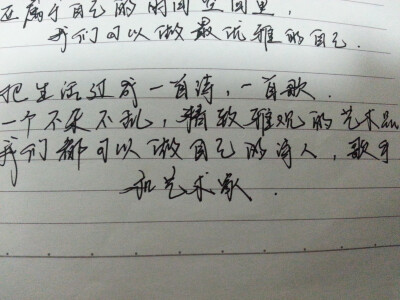 在属于自己的时间空间里,
我们可以做最优雅的自己.
把生活过成一首诗,一首歌.
一个不呆不乱,精致雅观的艺术品
我们都可以做自己的诗人,歌手
和艺术家.